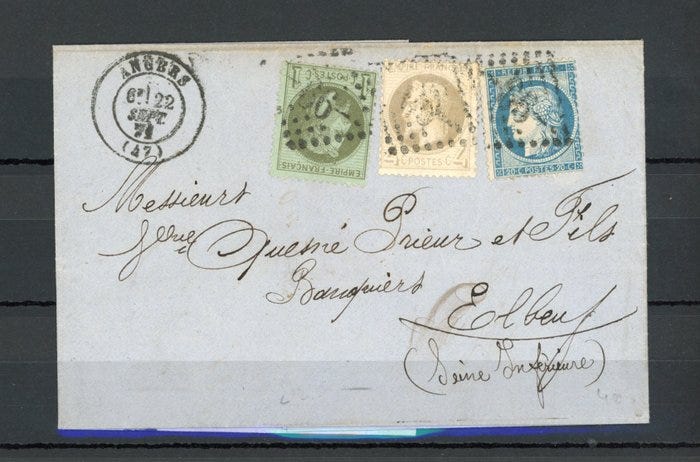 ANGERS
6E 22
SEPT.
71
(47)
1 POSTES C. 1
EMPIRE-FRANÇAIS
C POSTES C.
20 C POSTES 20 C
Messieurs
Quesné Prieur et Fils
Banquiers
Elbeuf
(Seine Inférieure)